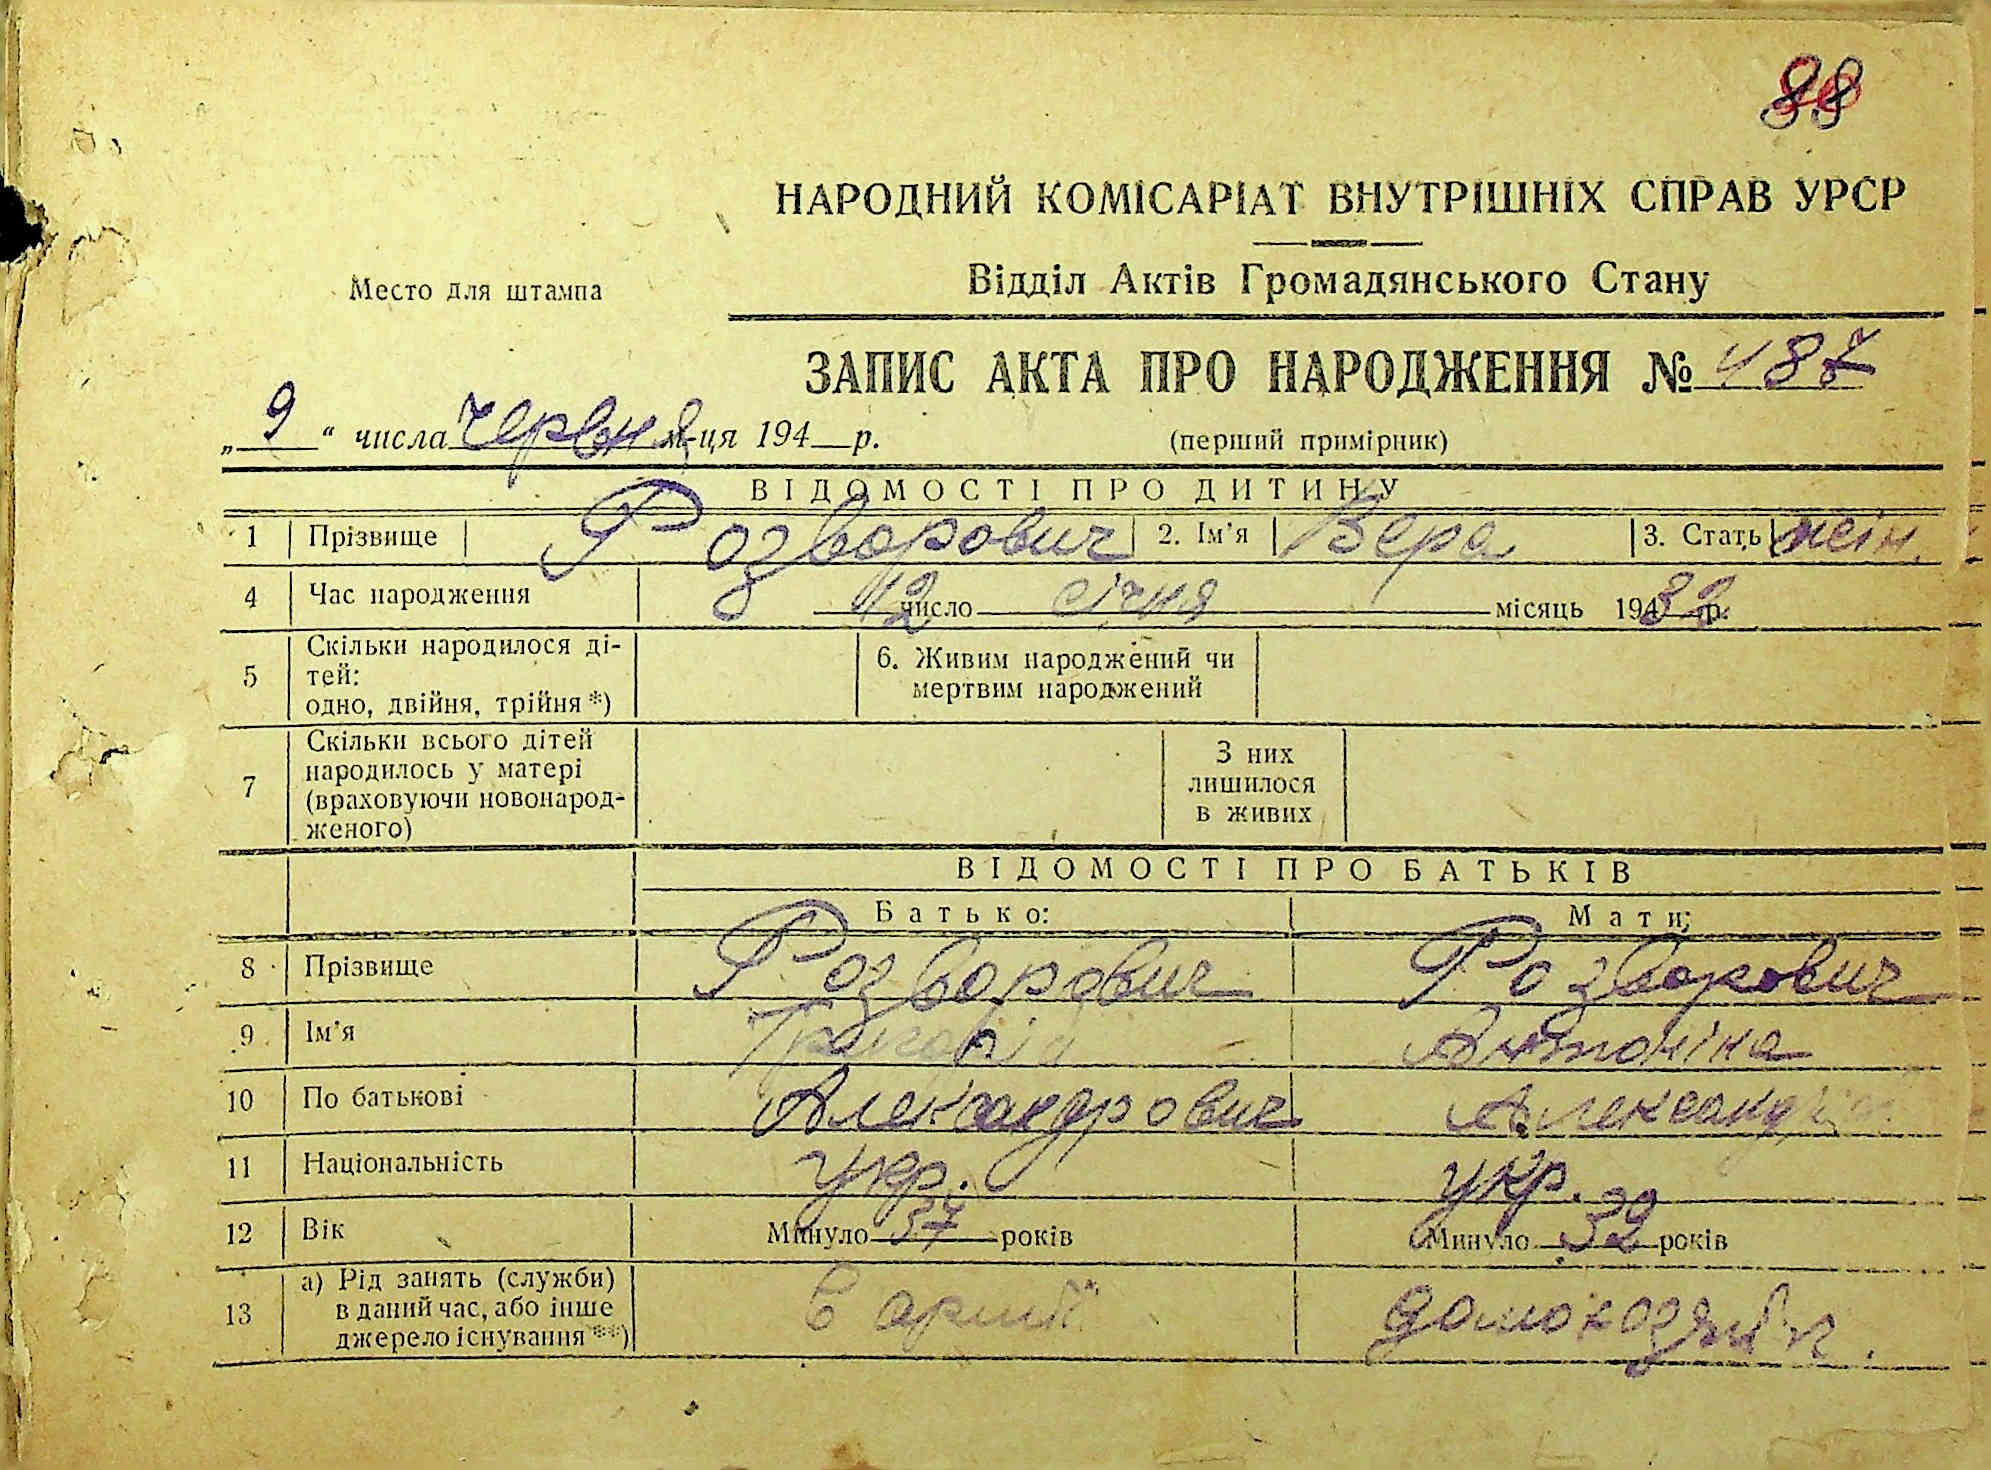 88
НАРОДНИЙ КОМІСАРІАТ ВНУТРІШНІХ СПРАВ УРСР
Место для штампа
Відділ Актів Громадянського Стану
ЗАПИС АКТА ПРО НАРОДЖЕННЯ № 487
„ 9 “ числа червня м-ця 194 р. (перший примірник)
ВІДОМОСТІ ПРО ДИТИНУ
1 Прізвище Розворович 2. Ім’я Вера 3. Стать жін.
4 Час народження 12 число січня місяць 194 32 р.
5 Скільки народилося ді-
тей:
одно, двійня, трійня *)
6. Живим народжений чи
мертвим народжений
7 Скільки всього дітей
народилось у матері
(враховуючи новонарод-
женого)
З них
лишилося
в живих
ВІДОМОСТІ ПРО БАТЬКІВ
Батько: Мати:
8 Прізвище Розворович Розворович
9 Ім’я Григорій Антоніна
10 По батькові Александрович Александр
11 Національність укр. укр.
12 Вік Минуло 37 років Минуло 32 років
13 а) Рід занять (служби)
в даний час, або інше
джерело існування **)
в армії домохозяйк.